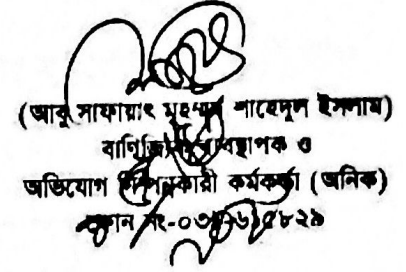 (আবু সাফায়াৎ মুহম্মদ শাহেদুল ইসলাম)
বাণিজ্যিক ব্যবস্থাপক ও
অভিযোগ নিষ্পত্তিকারী কর্মকর্তা (অনিক)
ফোন নং-